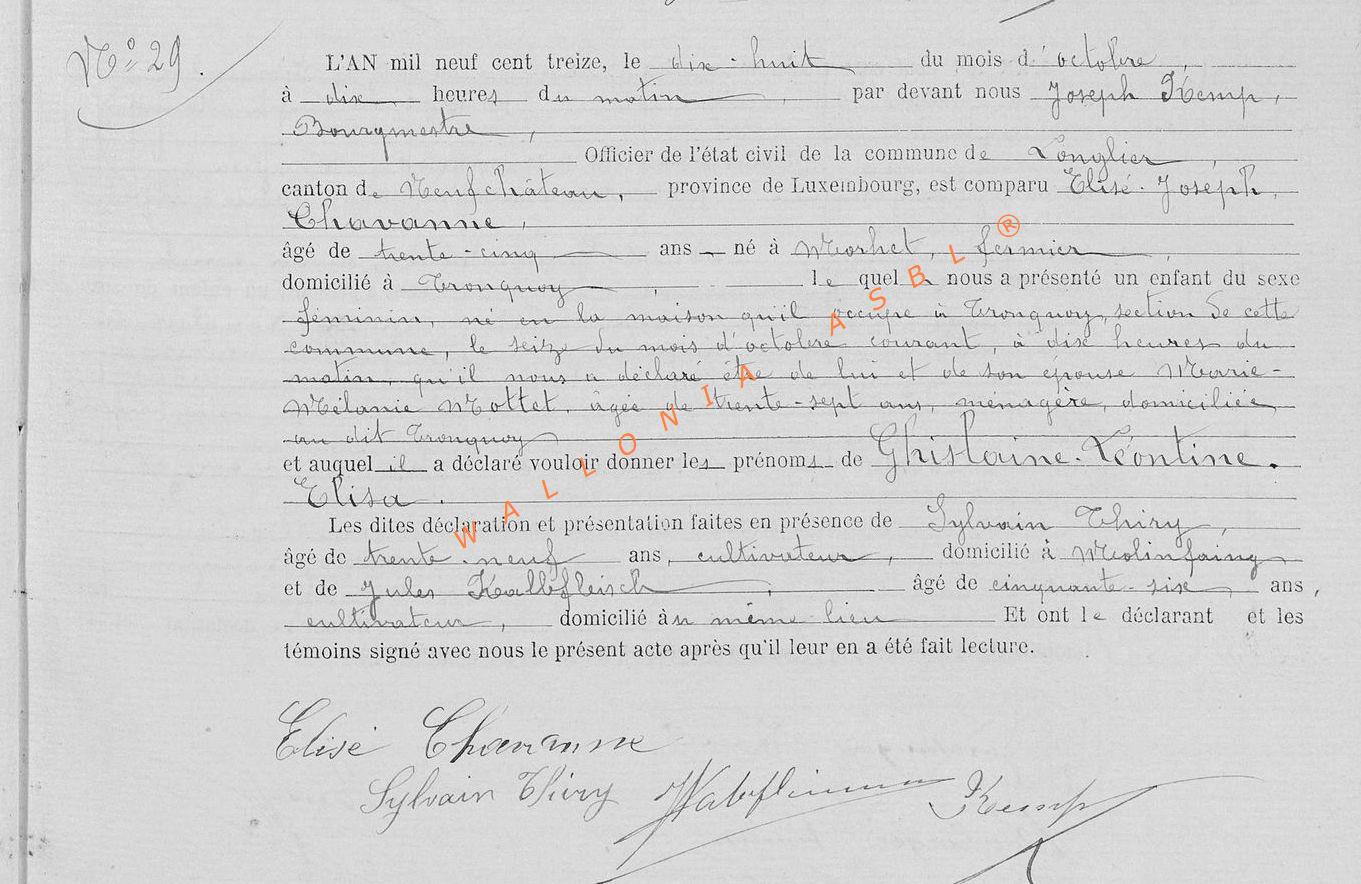 N° 29.
L'AN mil neuf cent treize, le dix-huit du mois d'octobre,
à dix heures du matin, par devant nous Joseph Kemp,
Bourgmestre,
Officier de l'état civil de la commune de Longlier,
canton de Neufchâteau, province de Luxembourg, est comparu Elisé-Joseph
Chavanne,
âgé de trente-cinq ans né à Morhet, fermier,
domicilié à Tronquoy, lequel nous a présenté un enfant du sexe
féminin, né en la maison qu'il occupe à Tronquoy, section de cette
commune, le seize du mois d'octobre courant, à dix heures du
matin, qu'il nous a déclaré être de lui et de son épouse Marie-
Mélanie Mottet, âgée de trente-sept ans, ménagère, domiciliée
au dit Tronquoy
et auquel il a déclaré vouloir donner les prénoms de Ghislaine-Léontine.
Elisa.
Les dites déclaration et présentation faites en présence de Sylvain Thiry,
âgé de trente-neuf ans, cultivateur, domicilié à Molinfaing
et de Jules Kalbfleisch, âgé de cinquante-six ans,
cultivateur, domicilié au même lieu Et ont le déclarant et les
témoins signé avec nous le présent acte après qu'il leur en a été fait lecture.
Elisé Chavanne
Sylvain Thiry Kemp
WALLONIA ASBL®